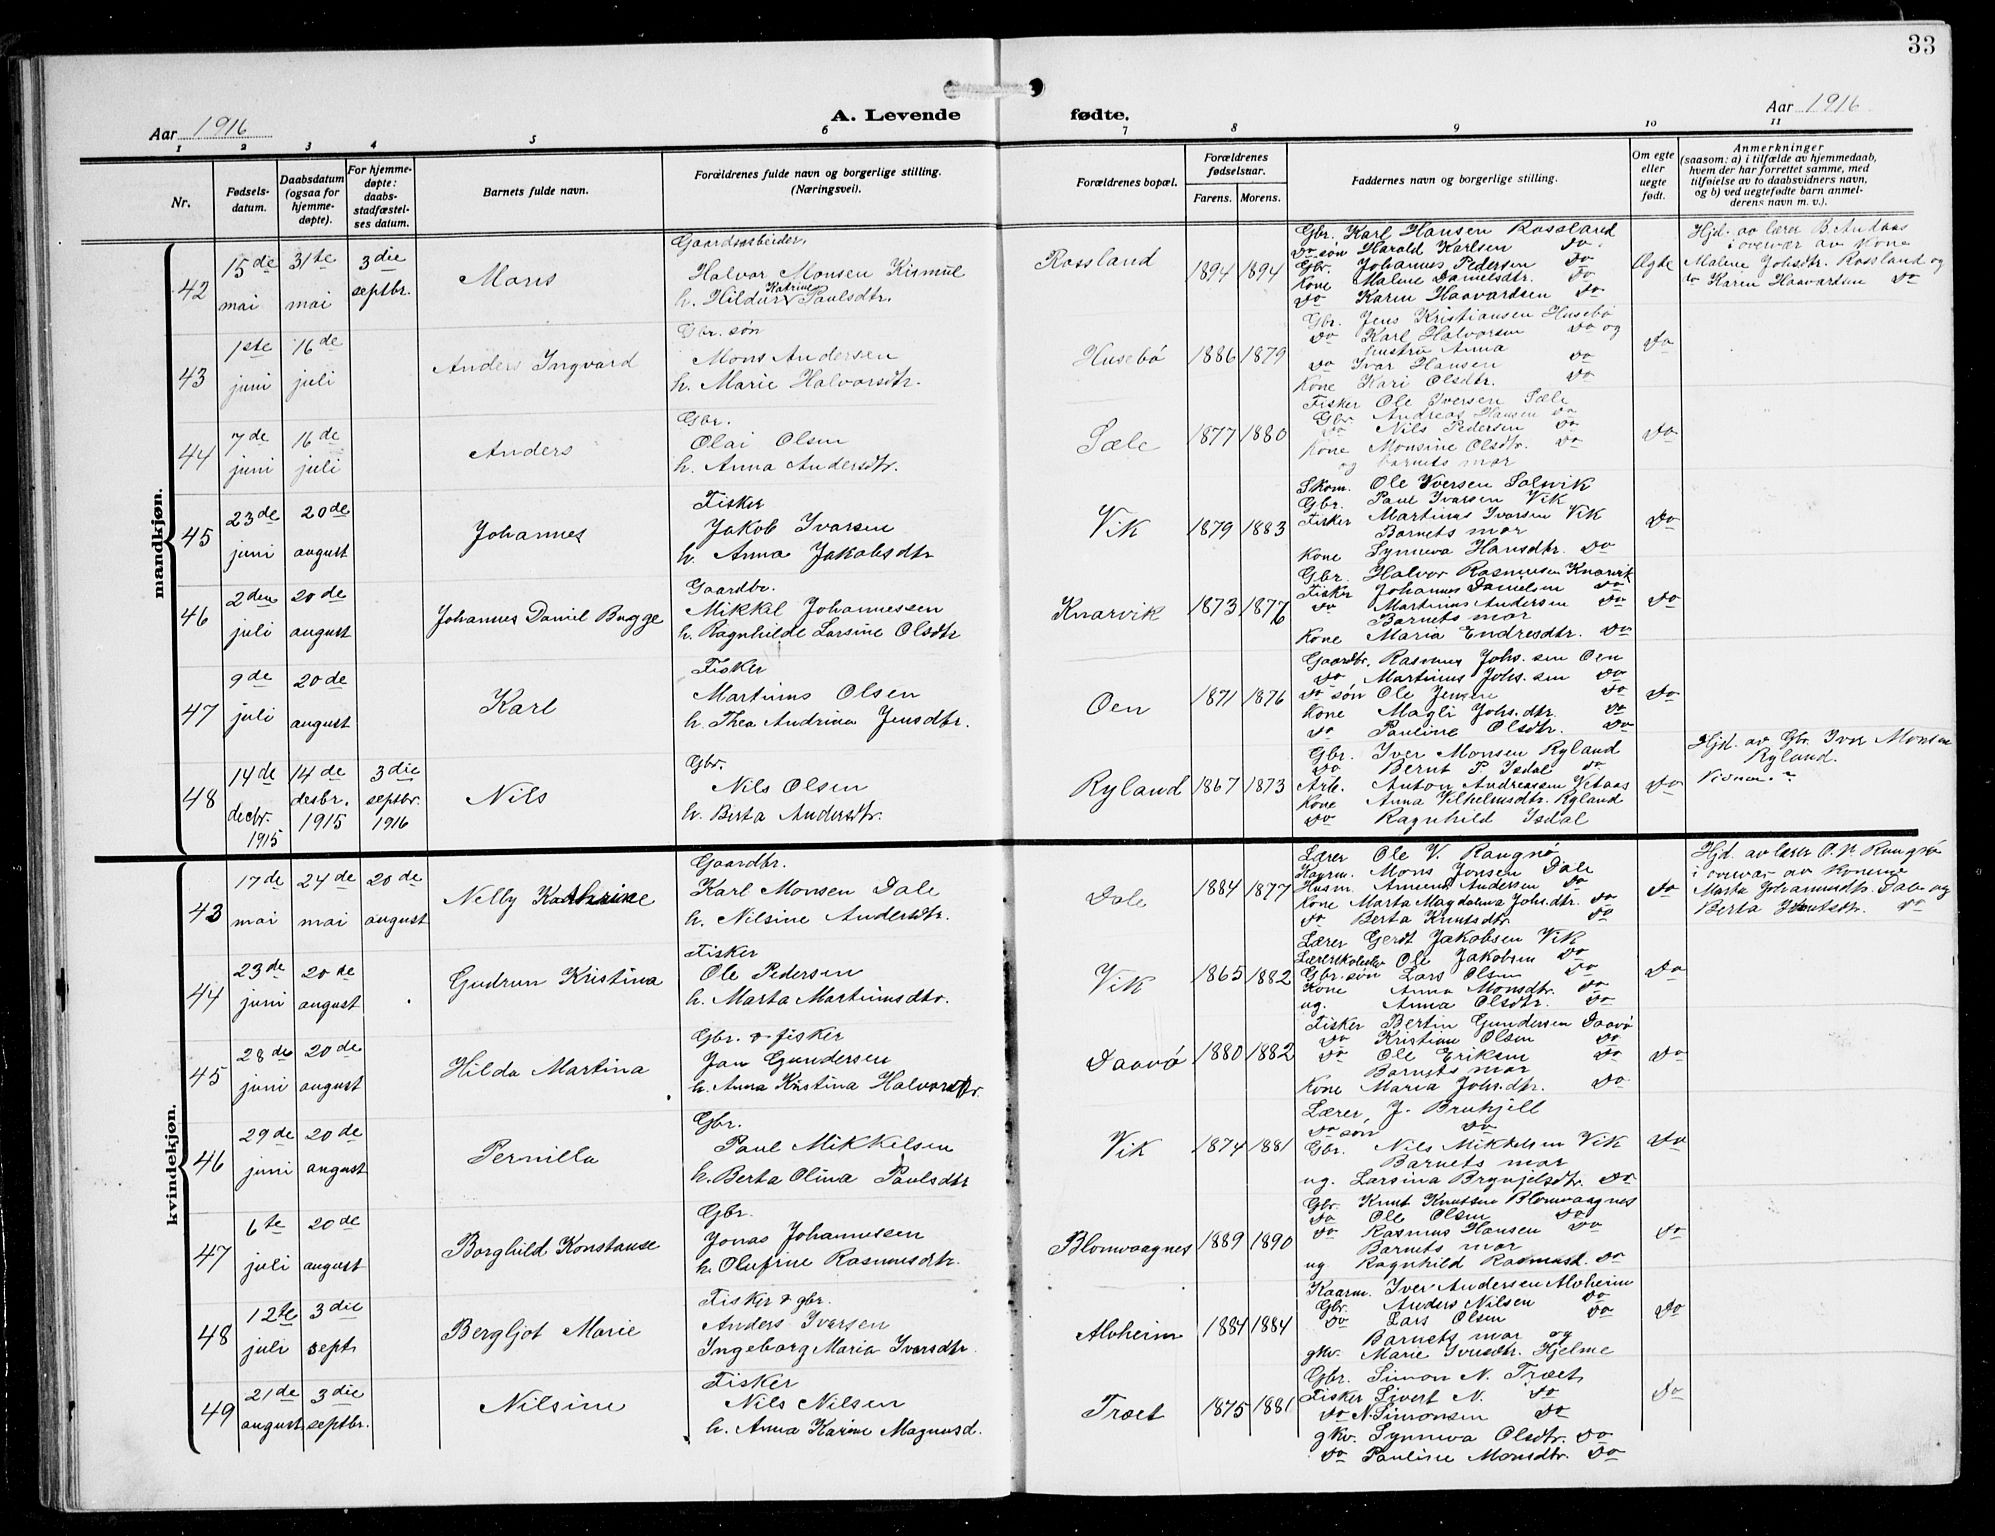 33
Aar 1916
A. Levende fødte.
Aar 1916
1 2 3 4 5 6 7 8 9 10 11
Nr.
Fødsels-
datum.
Daabsdatum
(ogsaa for
hjemme-
døpte).
For hjemme-
døpte:
daabs-
stadfæstel-
ses datum.
Barnets fulde navn.
Forældrenes fulde navn og borgerlige stilling.
(Næringsvei).
Forældrenes bopæl.
Forældrenes
fødselsaar.
Farens. Morens.
Faddernes navn og borgerlige stilling.
Om egte
eller
uegte
født.
Anmerkninger
(saasom: a) i tilfælde av hjemmedaab,
hvem der har forrettet samme, med
tilføielse av to daabsvidners navn,
og b) ved uegtefødte barn anmel-
derens navn m. v.).
mandkjøn.
42
15de
mai
31te
mai
3die
septbr.
Mons
Gaardsarbeider,
Halvor Monsen Kismul
Katrine
h. Hildur Paulsdtr.
Rossland
1894 1894
Gbr. Karl Hansen Rossland
Do søn Harald Karlsen Do
Gbr. Johannes Pedersen Do
Kone Malene Danielsdtr. Do
Do Karen Haavardsen Do
Ægte
Hjd. av lærer B. Andaas
i overvær av Kone
Malene Johsdtr. Rossland og
Karen Haavardsen Do
43
1ste
juni
16de
juli
Anders Ingvard
Gbr. søn
Mons Andersen
h. Marie Halvorsdtr.
Husebø
1886 1879
Gbr. Jens Kristiansen Husebø
Do Karl Halvorsen Do og
hustru Anna
Do Ivar Hansen Do
Kone Kari Olsdtr. Do
Do
44
7de
juni
16de
juli
Anders
Gbr.
Olai Olsen
h. Anna Andersdtr.
Sæle
1877 1880
Fisker Ole Iversen Sæle
Gbr. Andreas Hansen Do
Do Nils Pedersen Do
Kone Monsine Olsdtr. Do
og barnets mor
Do
45
23de
juni
20de
august
Johannes
Fisker
Jakob Ivarsen
h. Anna Jakobsdtr
Vik
1879 1883
Skom. Ole Iversen Solvik
Gbr. Paul Ivarsen Vik
Fisker Martinus Ivarsen Vik
Barnets mor
Kone Synneva Hansdtr. Do
Do
46
2den
juli
20de
august
Johannes Daniel Bugge
Gaardbr.
Mikkel Johannessen
h. Ragnhilde Larsine Olsdtr
Knarvik
1873 1876
Gbr. Halvor Rasmussen Knarvik
Fisker Johannes Danielsen Do
Do Martinus Andersen Do
Barnets mor
Kone Maria Endresdtr. Do
Do
47
9de
juli
20de
august
Karl
Fisker
Martinus Olsen
h. Thea Andrina Jensdtr.
Oen
1871 1876
Gaardbr. Rasmus Johs.sen Oen
Do Martinus Johs.sen Do
Do søn Ole Jensen Do
Kone Magli Johs.dtr. Do
Do Pauline Olsdtr. Do
Do
48
14de
decbr.
1915
14de
desbr.
1915
3die
septbr.
1916
Nils
Gbr.
Nils Olsen
h. Berta Andersdtr.
Ryland
1867 1873
Gbr. Iver Monsen Ryland
Do Bernt P. Isdal Do
Arb. Anton Andreassen Vetaas
Kone Anna Vilhelmsdtr. Ryland
Do Ragnhild Isdal
Do
Hjd. av Gbr. Iver Monsen
Ryland.
kvindekjøn.
43
17de
mai
24de
mai
20de
august
Nelly Kathrine
Gaardbr.
Karl Monsen Dale
h. Nilsine Andersdtr.
Dale
1884 1877
Lærer Ole V. Rangnø
Kaarm. Mons Jonsen Dale
Husm. Andersen Do
Kone Marta Magdalena Johs.dtr. Do
Do Berta Knutsdtr. Do
Do
Hjd. av lærer O. V. Rangnø
i overvær av Konerne
Marta Johannesdtr. Dale og
Berta Knutsdtr. Do
44
23de
juni
20de
august
Gudrun Kristina
Fisker
Ole Pedersen
h. Marta Martinusdtr.
Vik
1865 1882
Lærer Gerdt Jakobsen Vik
Lærerskoleelev Ole Jakobsen Do
Gbr. søn Lars Olsen Do
Kone Anna Monsdtr. Do
ug. Anna Olsdtr. Do
Do
45
28de
juni
20de
august
Hilda Martina
Gbr. & fisker
Jan Gundersen
h. Anna Kristina Halvorsdtr.
Daavø
1880 1882
Fisker Bertin Gundersen Daavø
Do Kristian Olsen Do
Do Ole Eriksen Do
Barnets mor
Kone Maria Johs.dtr. Do
Do
46
29de
juni
20de
august
Pernilla
Gbr.
Paul Mikkelsen
h. Berta Olina Paulsdtr
Vik
1874 1881
Lærer J. Bruhjell
Do søn Do
Gbr. Nils Mikkelsen Vik
Barnets mor
ug. Larsina Brynjelsdtr. Do
Do
47
6te
juli
20de
august
Borghild Konstanse
Gbr.
Jonas Johannessen
h. Olufine Rasmusdtr.
Blomvaagnes
1889 1890
Gbr. Knut Knutsen Blomvaagnes
Do Ole Olsen Do
Do Rasmus Hansen Do
Barnets mor
ug Ragnhild Rasmusd. Do
Do
48
12te
juli
3die
sept.
Bergljot Marie
Fisker & gbr.
Anders Iversen
Ingeborg Maria Ivarsdtr.
Alvheim
1884 1884
Kaarm. Iver Andersen Alvheim
Gbr. Anders Nilsen Do
Do Lars Olsen Do
Barnets mor og
gkv. Marie Iversdtr. Hjelme
Do
49
21de
august
3die
septbr.
Nilsine
Fisker
Nils Nilsen
h. Anna Karine Magnusd.
Træet
1875 1881
Gbr. Simon N. Træet,
Fisker Sivert N. Do
Do N. Simonsen Do
gkv. Synneva Olsdtr. Do
Do Pauline Monsdtr. Do
Do